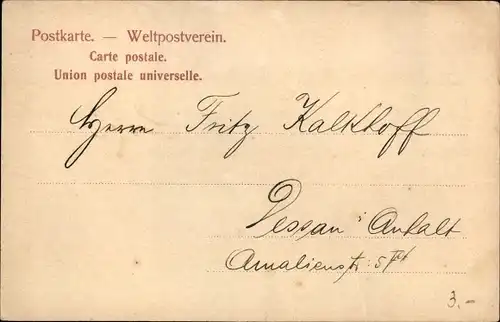 Postkarte. — Weltpostverein.
Carte postale.
Union postale universelle.
Herrn Fritz Kalkhoff
Dessau Anhalt
Amalienstr. 5
3.-